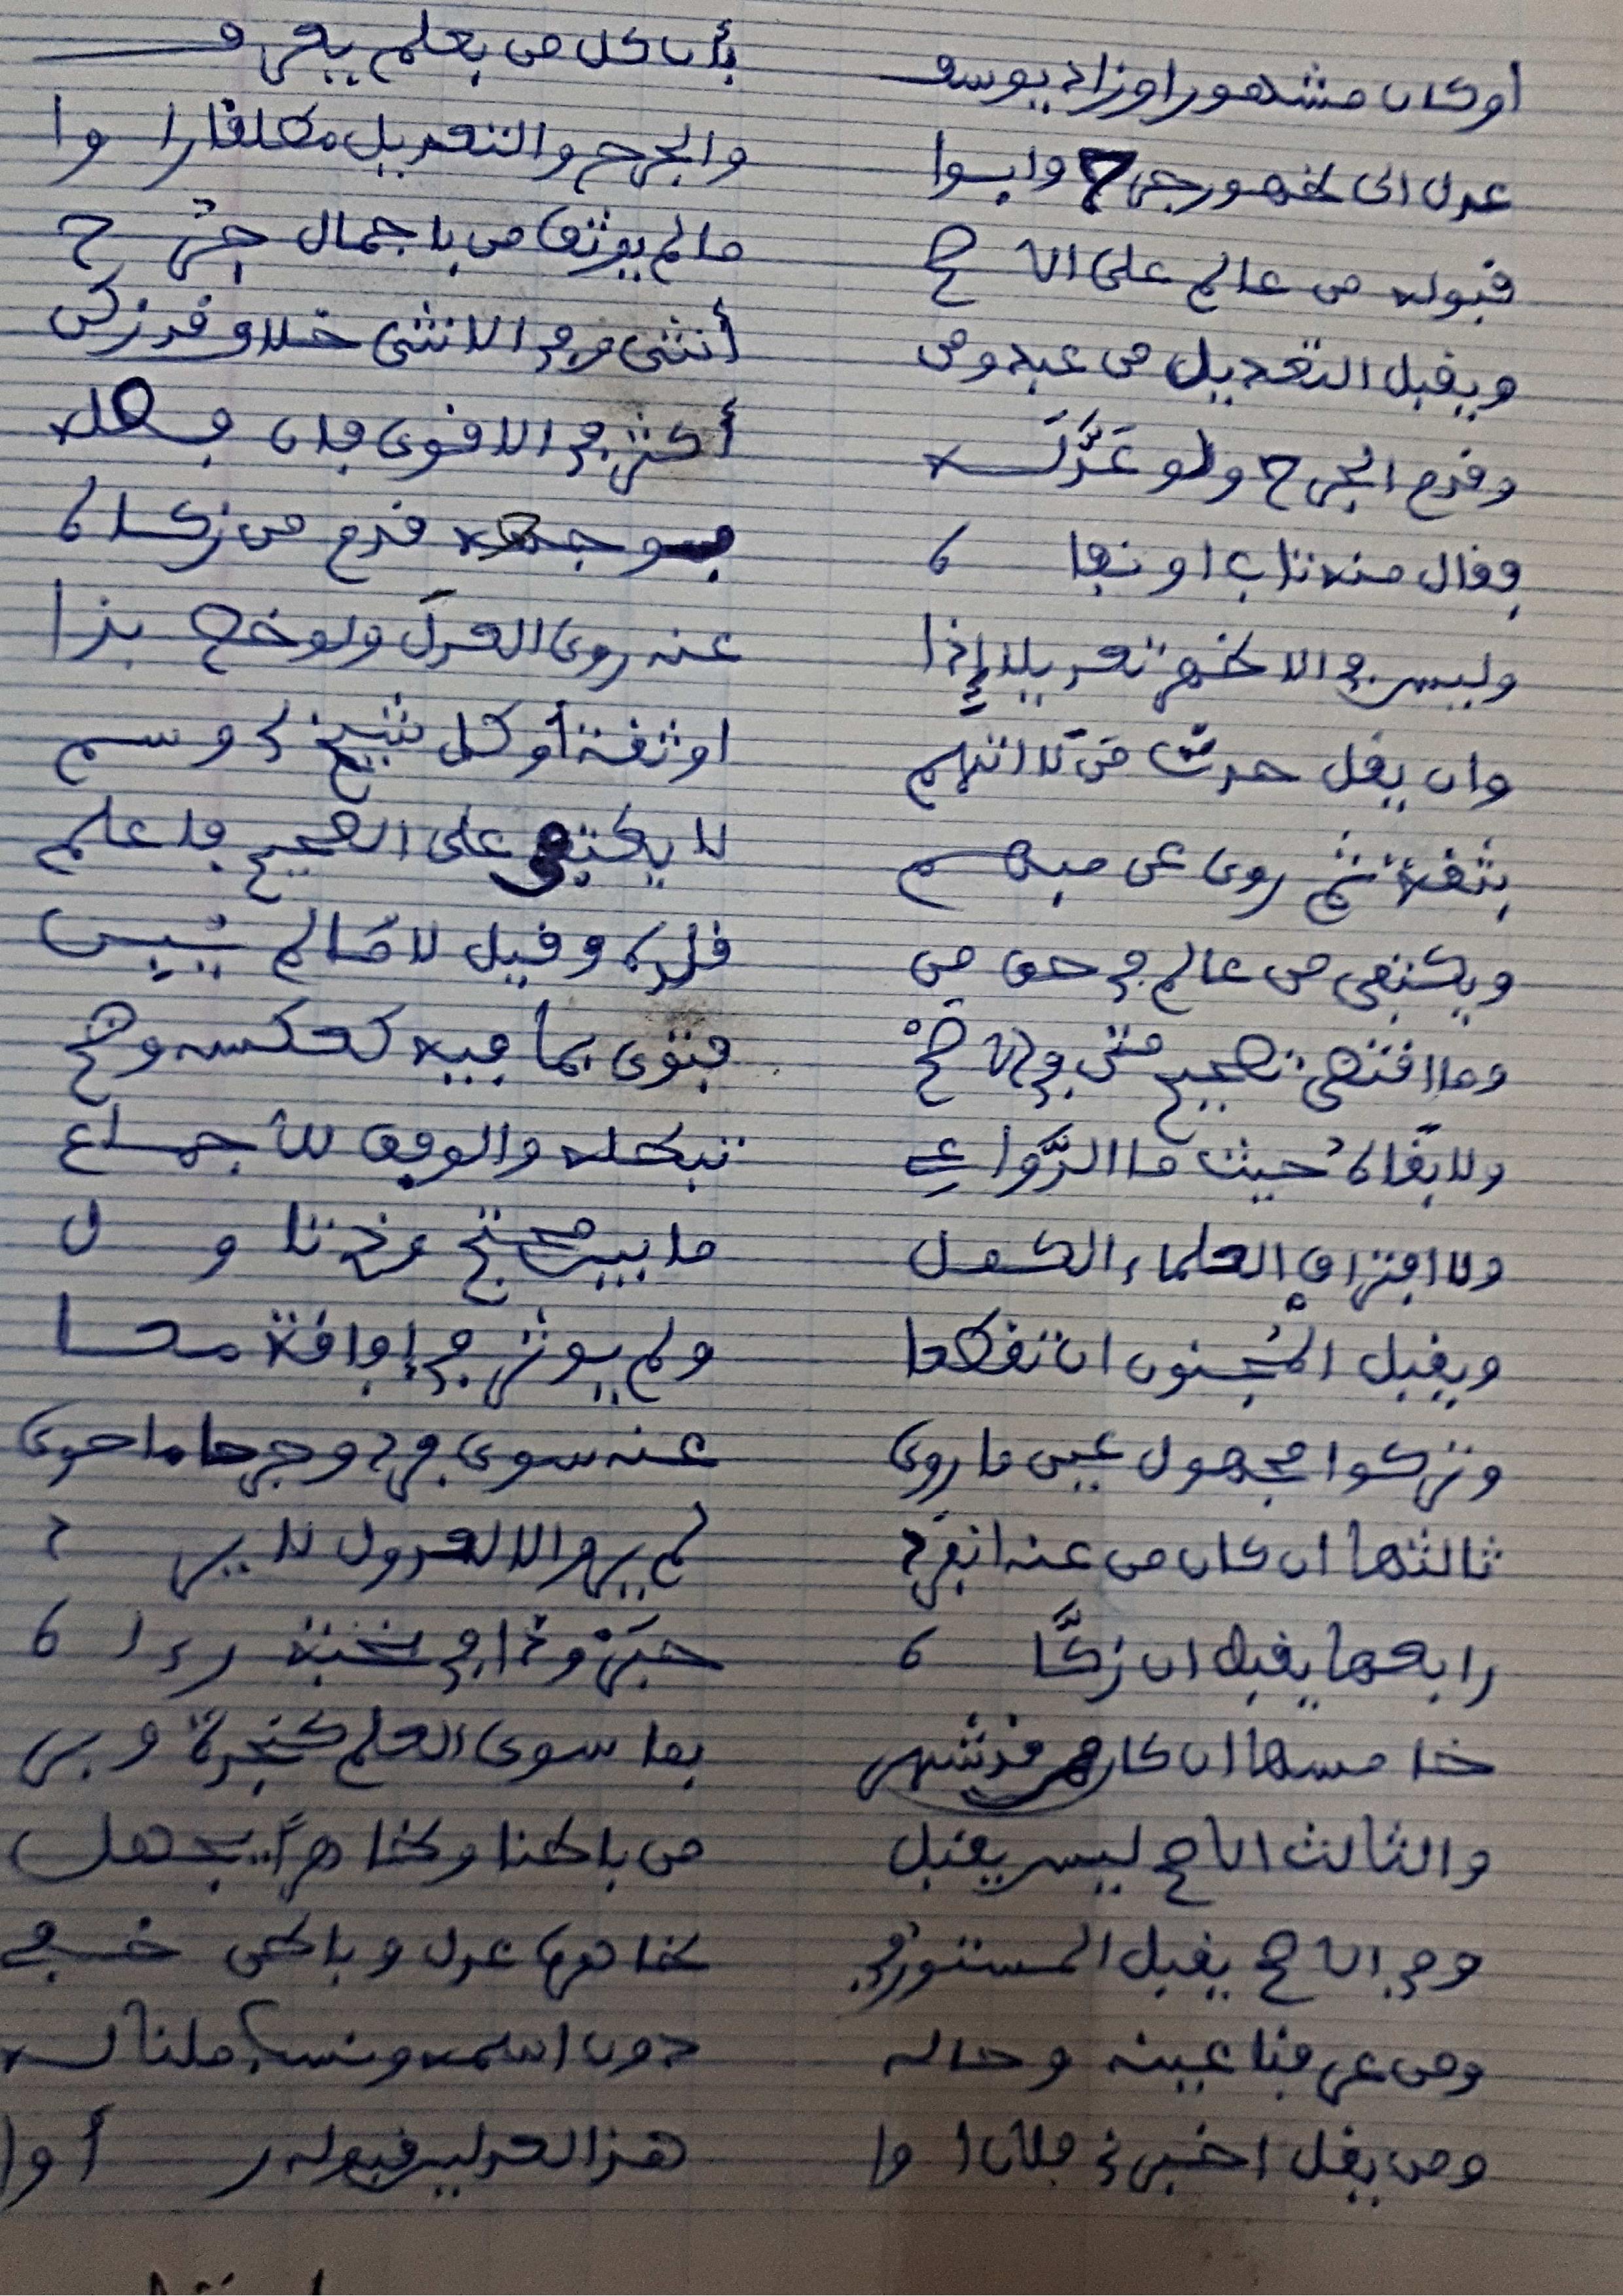 أو كان مشهورا وزاد يوسف بأن كل من بعلم يعرف
عدل الى ظهور جرح وابوا والجرح والتعديل مطلقا راوا
قبوله من عالم على الاصح مالم يوثق من باجمال جرح
ويقبل التعديل من عبد ومن أنثى وفي الانثى خلاف قد زكن
وقدم الجرح ولو عدله أكثر في الاقوى فان فصله
فقال منه تاب او نفاه بوجهه قدم من زكاه
وليس في الاظهر تعديلا إذا عنه روى العدل ولو خص بذا
وان يقل حدث من لا اتهم او ثقة أو كل شيخ لي وسم
بثقة ثم روى عن مبهم لا يكتفى على الصحيح فاعلم
ويكتفى من عالم في حق من قلده وقيل لا مالم يبين
وما اقتضى تصحيح متن في الاصح فتوى بما فيه كعكسه وضح
ولا بقاه حيث ما الدواعي تبطله والوفق للاجماع
ولا افتراق العلماء الكمل ما بين محتج وذي تاول
ويقبل المجنون ان تقطعا ولم يوثر في إفاقة معا
وتركوا مجهول عين ما روى عنه سوى فرد وجرحا ما حوى
ثالثها ان كان من عنه انفرد لم يرو الا للعدول لا يرد
رابعها يقبل ان زكاه حبر وذا في نخبة رءاه
خامسها ان كان من قد شهر بما سوى العلم كنجدة وبر
والثالث الاصح ليس يقبل من باطنا وظاهرا يجهل
وفي الاصح يقبل المستور في ظاهرها عدل وباطن خفي
ومن عرفنا عينه وحاله دون اسمه ونسب ملنا له
ومن يقل اخبرني فلان اوا هذا لعدلين قبوله رأوا